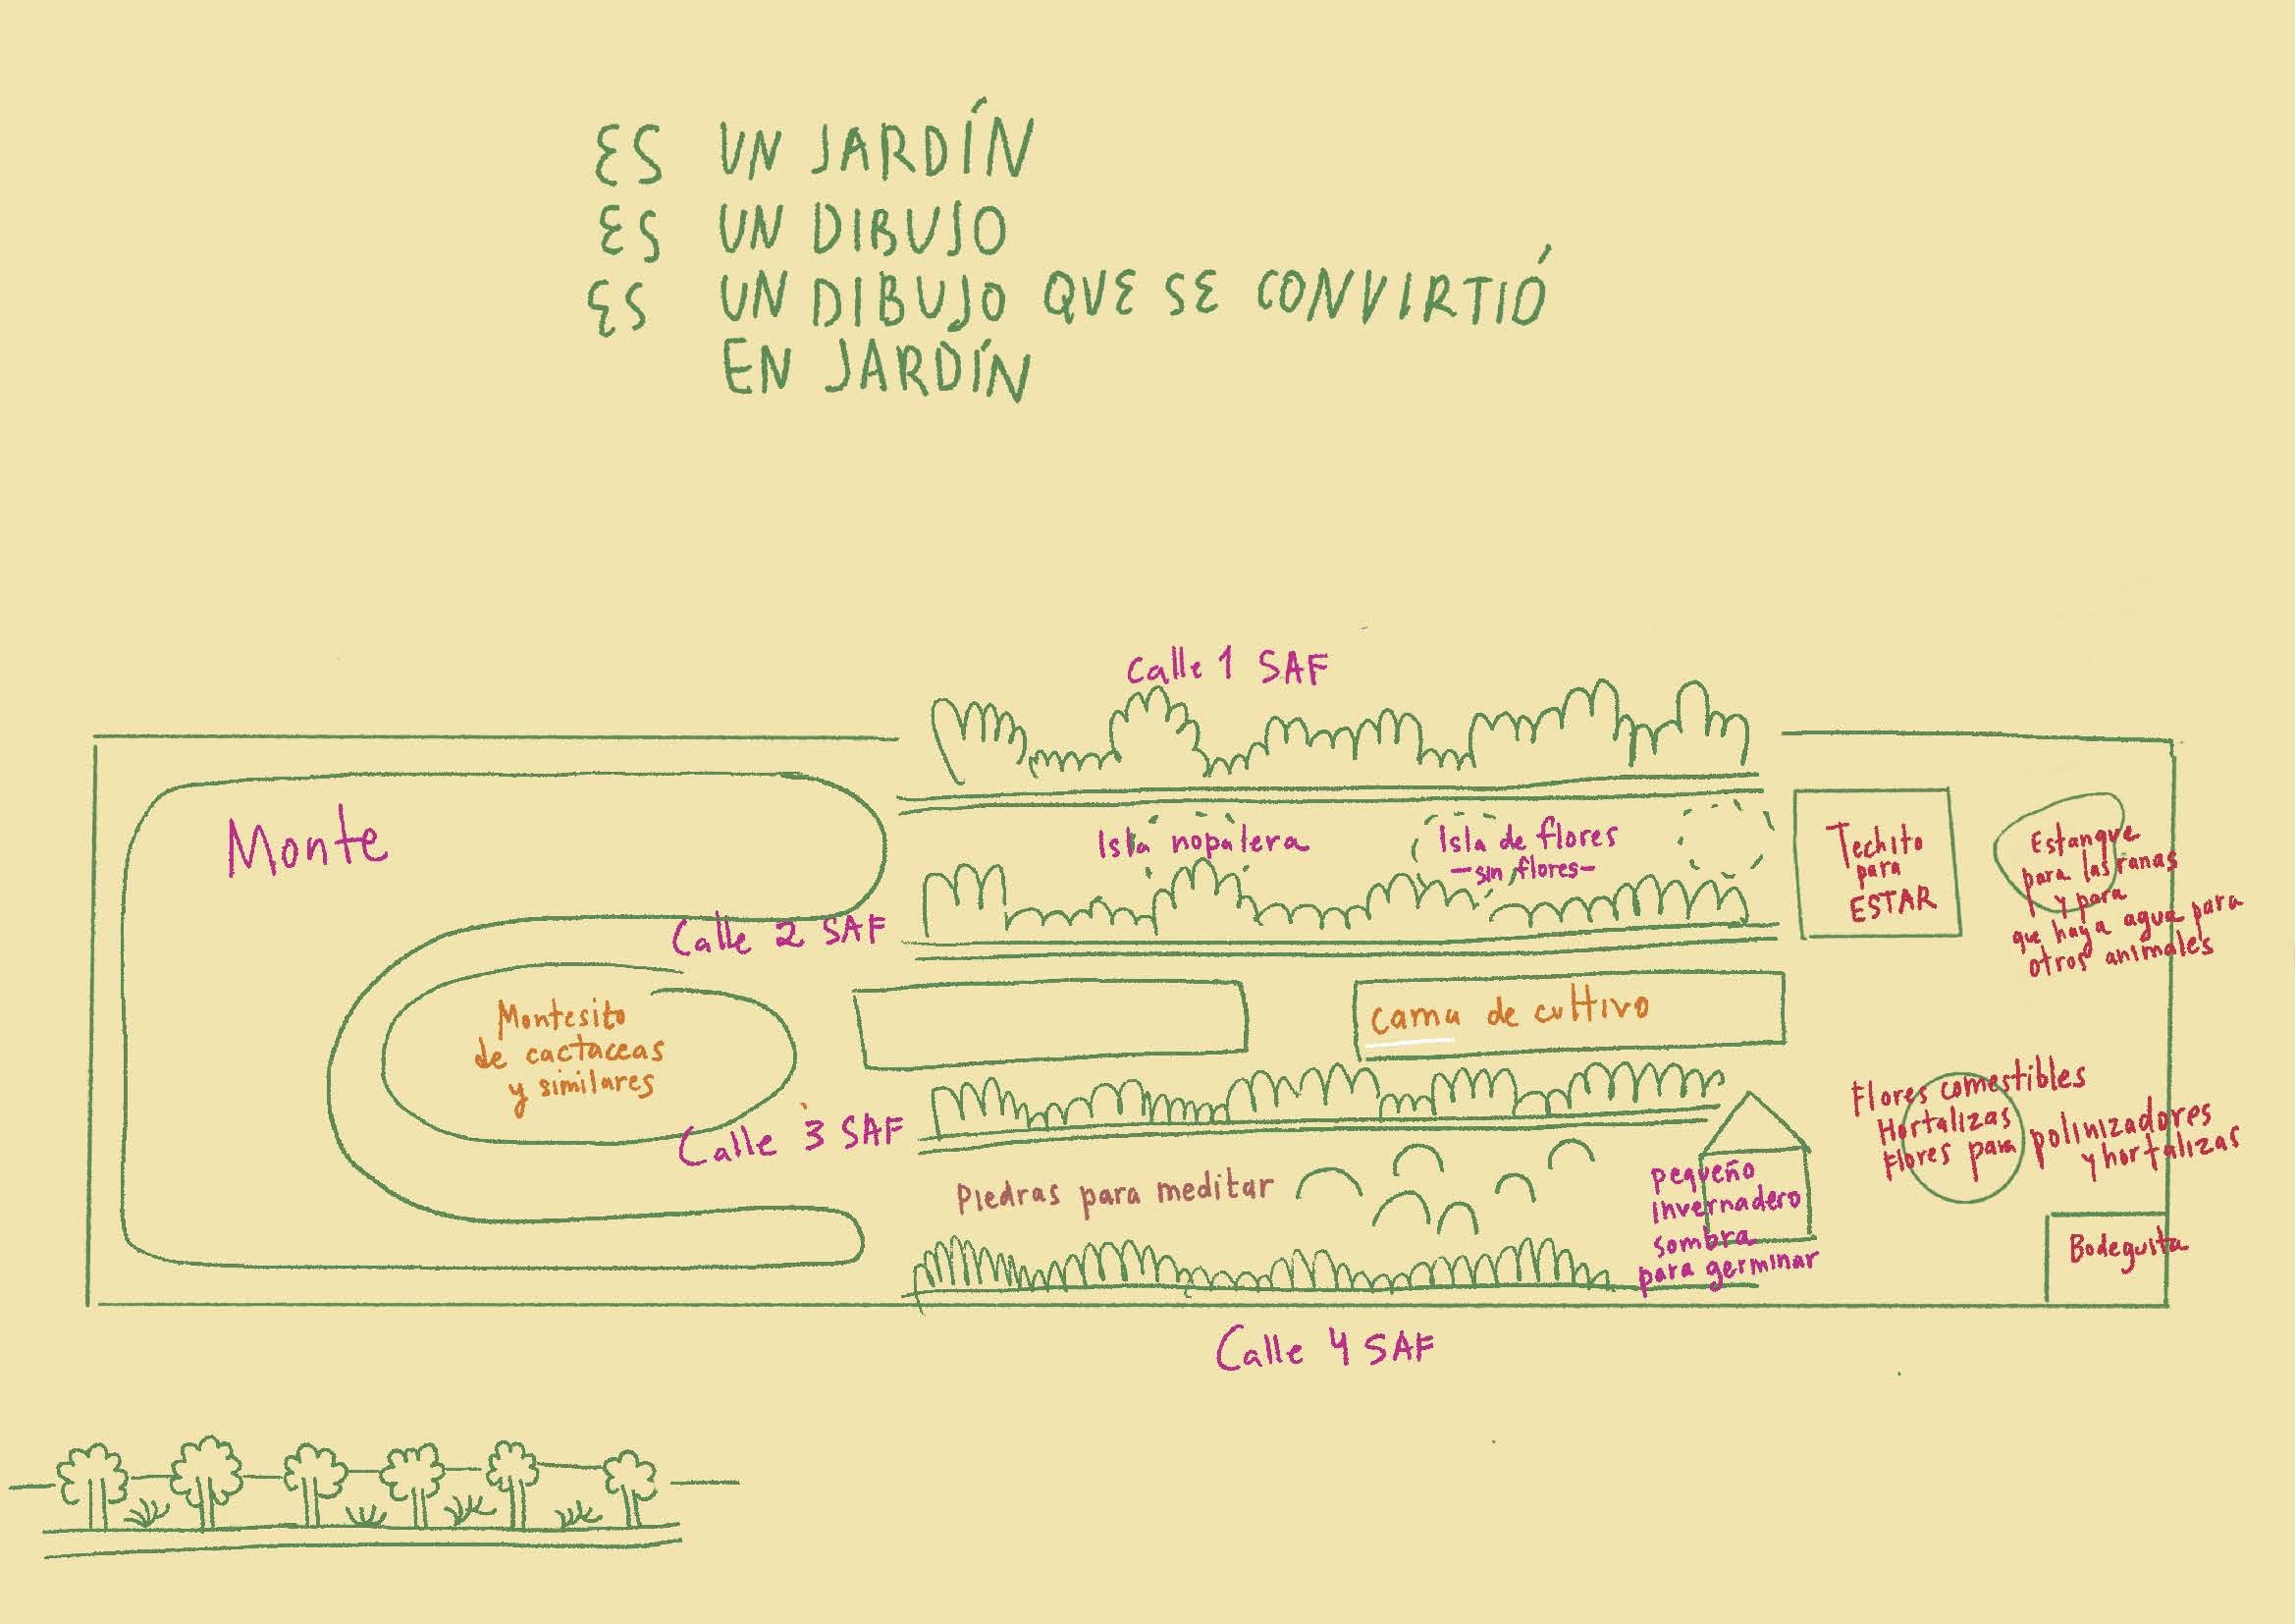 ES UN JARDÍN
ES UN DIBUJO
ES UN DIBUJO QUE SE CONVIRTIÓ
EN JARDÍN
Calle 1 SAF
Monte
Isla nopalera
Isla de flores
-sin flores-
Techito
para
ESTAR
Estanque
para las ranas
y para
que haya agua para
otros animales
Calle 2 SAF
Montesito
de cactaceas
y similares
cama de cultivo
Calle 3 SAF
Piedras para meditar
pequeño
invernadero
sombra
para germinar
Flores comestibles
Hortalizas
Flores para polinizadores
y hortalizas
Bodeguita
Calle 4 SAF